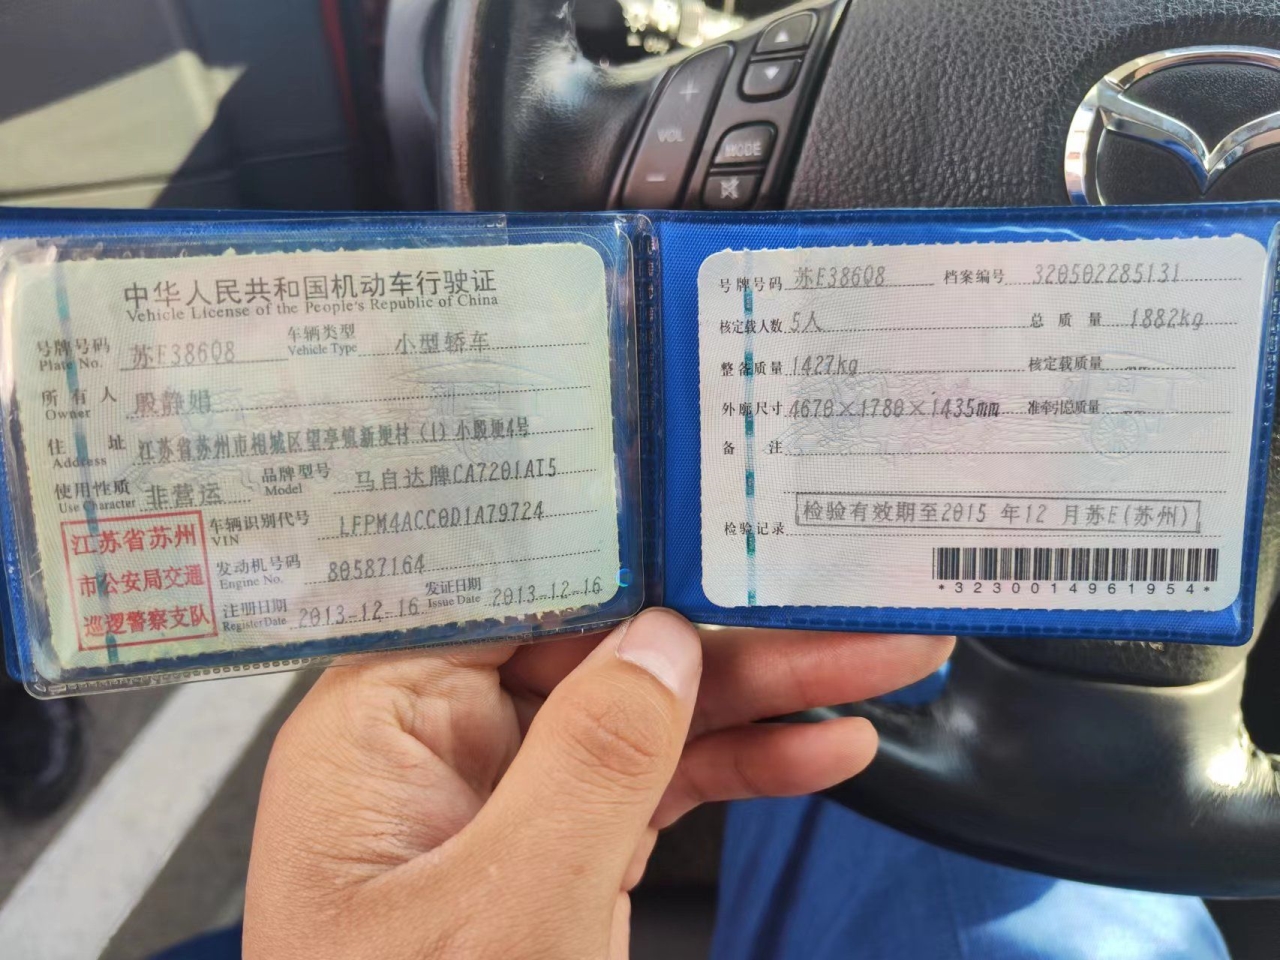 VOL
MODE
中华人民共和国机动车行驶证
Vehicle License of the People's Republic of China
号牌号码 苏E38608 车辆类型 小型轿车
Plate No. Vehicle Type
所有人 殷静娟
Owner
住址 江苏省苏州市相城区望亭镇新埂村(1)小殷埂4号
Address
使用性质 非营运 品牌型号 马自达牌CA7201AT5
Use Character Model
江苏省苏州
市公安局交通
巡逻警察支队
车辆识别代号 LFPM4ACC0D1A79724
VIN
发动机号码 80587164
Engine No.
注册日期 2013-12-16 发证日期 2013-12-16
Register Date Issue Date
号牌号码 苏E38608 档案编号 320502285131
核定载人数 5人 总质量 1882kg
整备质量 1427kg 核定载质量 --
外廓尺寸 4670×1780×1435mm 准牵引总质量 --
备注
检验记录 检验有效期至2015年12月苏E(苏州)
*3230014961954*